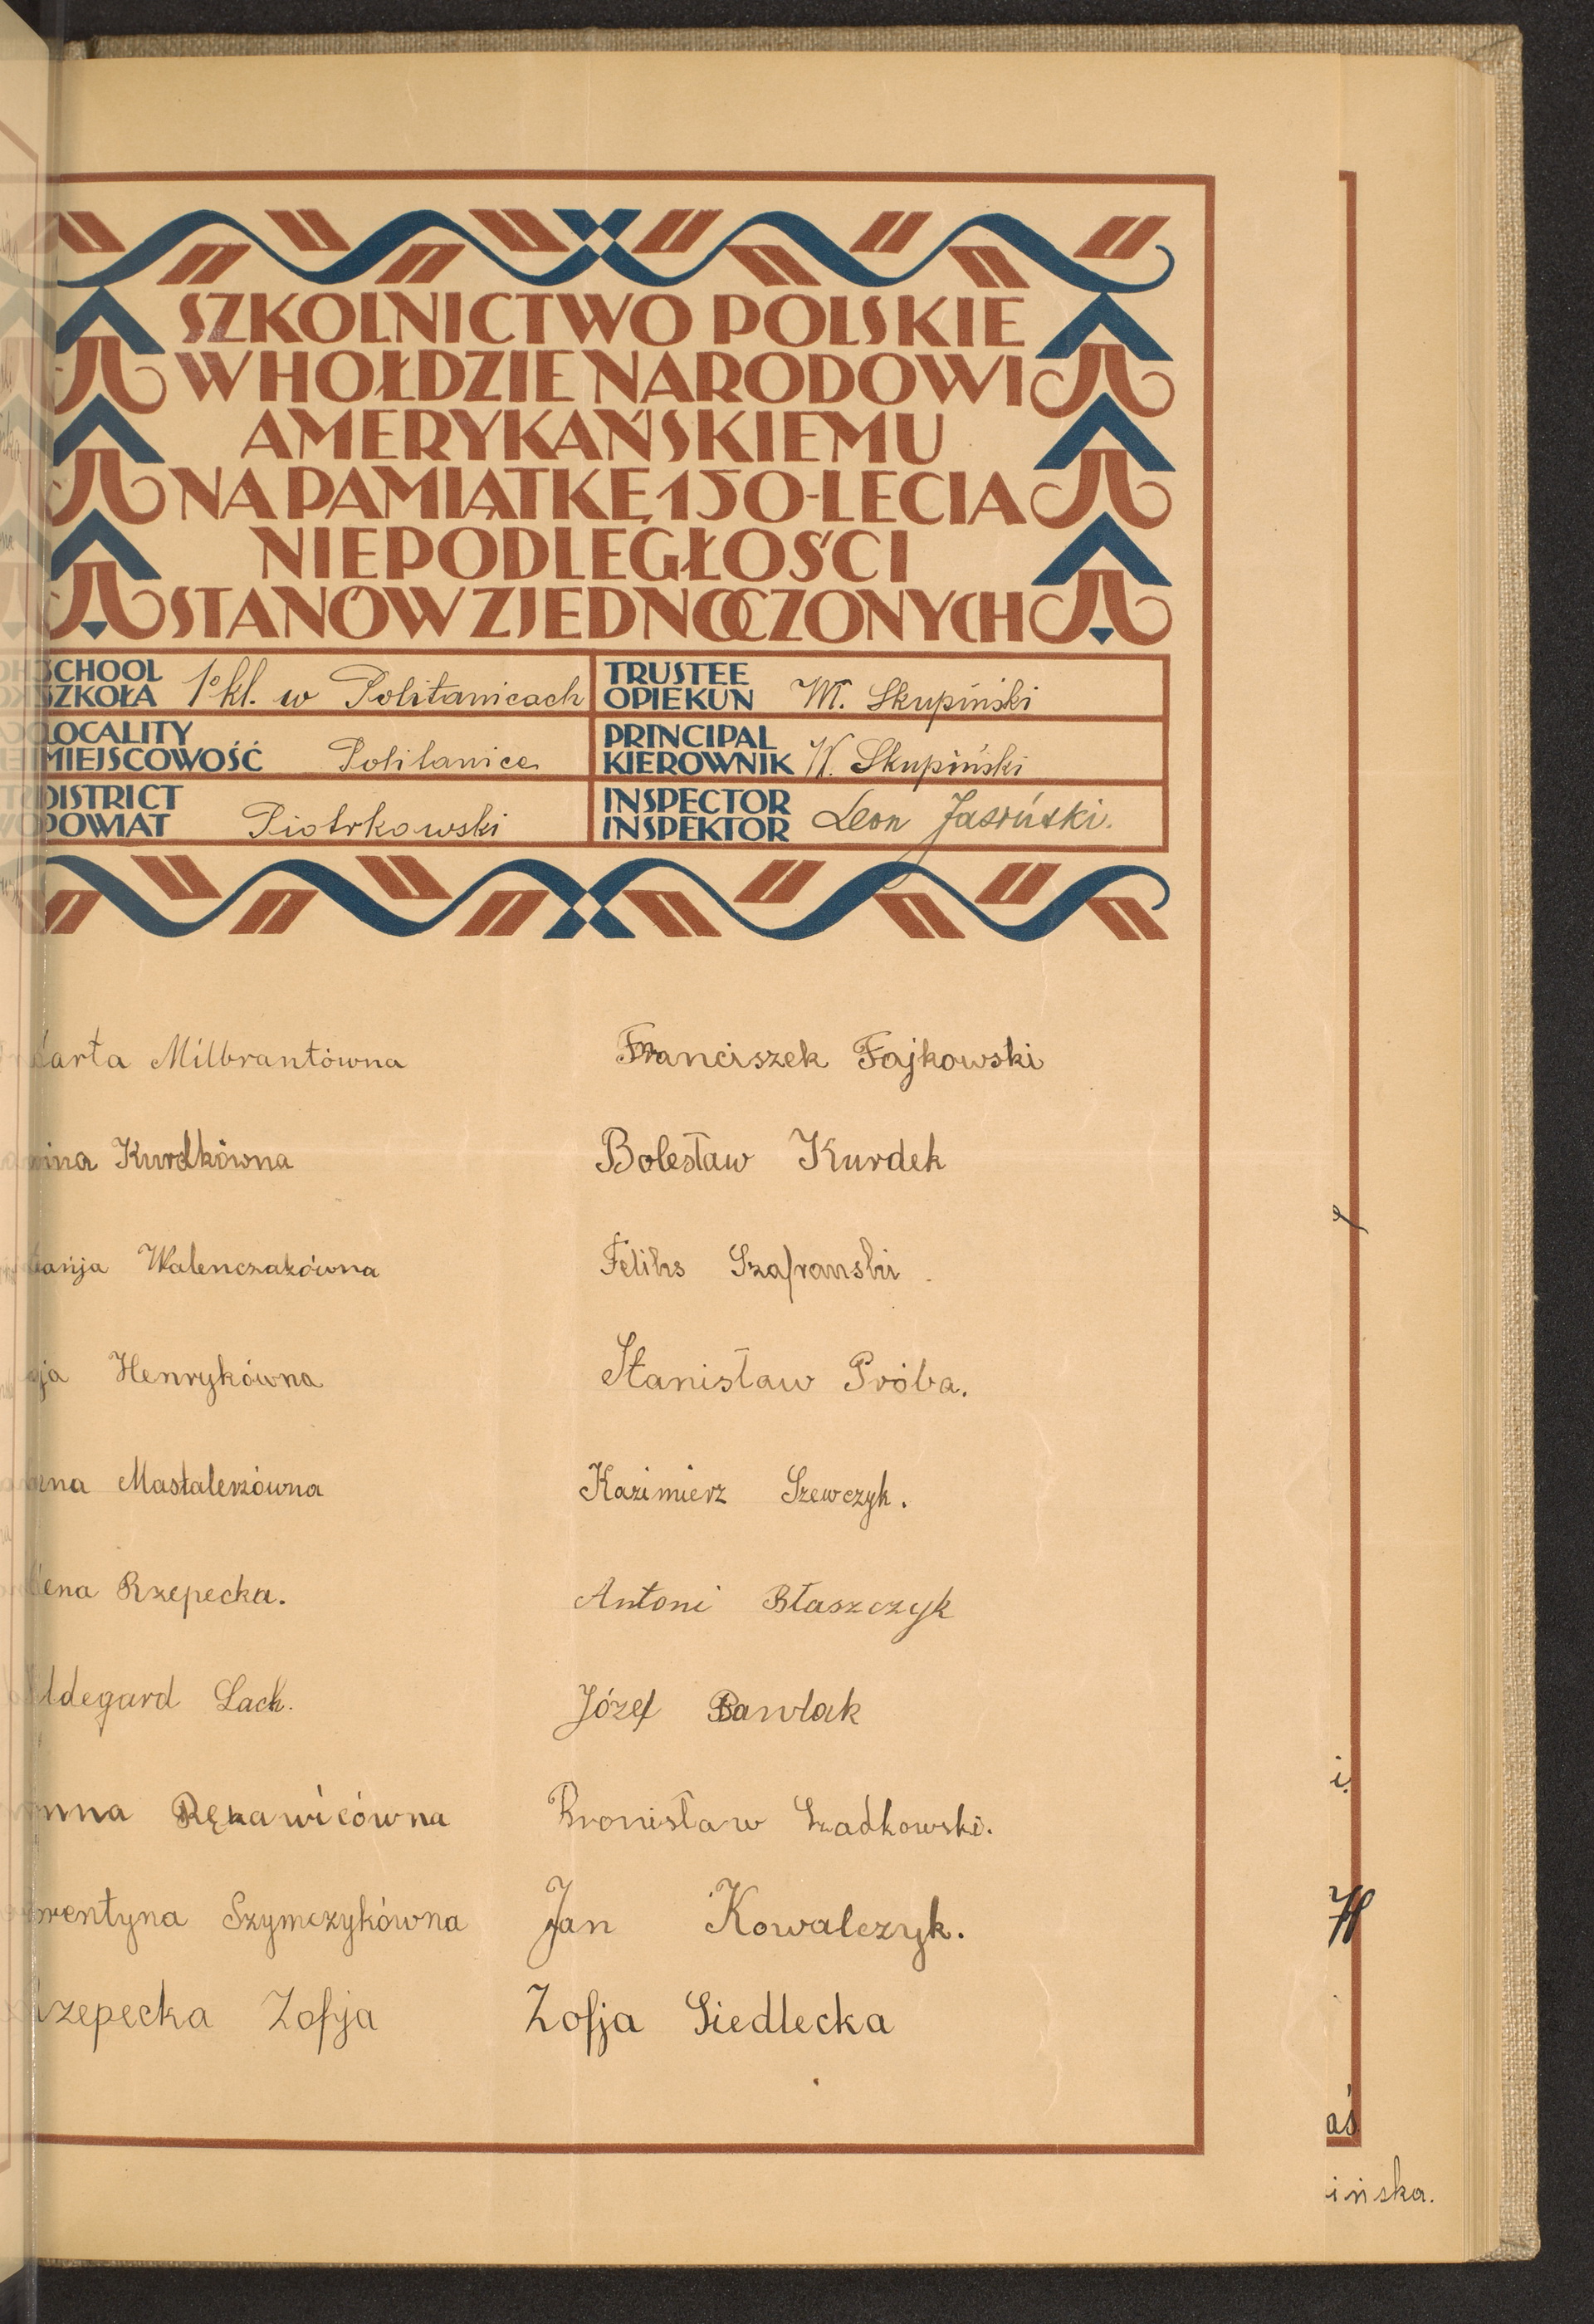 SZKOLNICTWO POLSKIE
W HOŁDZIE NARODOWI
AMERYKAŃSKIEMU
NA PAMIĄTKĘ 150-LECIA
NIEPODLEGŁOŚCI
STANÓW ZJEDNOCZONYCH
SCHOOL
SZKOŁA 1º kl. w Politanicach
TRUSTEE
OPIEKUN Wł. Skupiński
LOCALITY
MIEJSCOWOŚĆ Politanice
PRINCIPAL
KIEROWNIK W. Skupiński
DISTRICT
POWIAT Piotrkowski
INSPECTOR
INSPEKTOR Leon
arta Milbrantówna
Franciszek Fajkowski
ina Kurdkówna
Bolesław Kurdek
anja Walenczakówna
Feliks Szafranski
ja Henrykówna
Stanisław Próba.
na Mastalerzówna
Kazimierz Szewczyk.
ena Rzepecka.
Antoni Błaszczyk
ldegard Lack.
Józef Pawlak
nna Rękawicówna
Bronisław Szadkowski.
rentyna Szymczykówna
Jan Kowalczyk.
zepecka Zofja
Zofja Siedlecka
i.
aś
ińska.